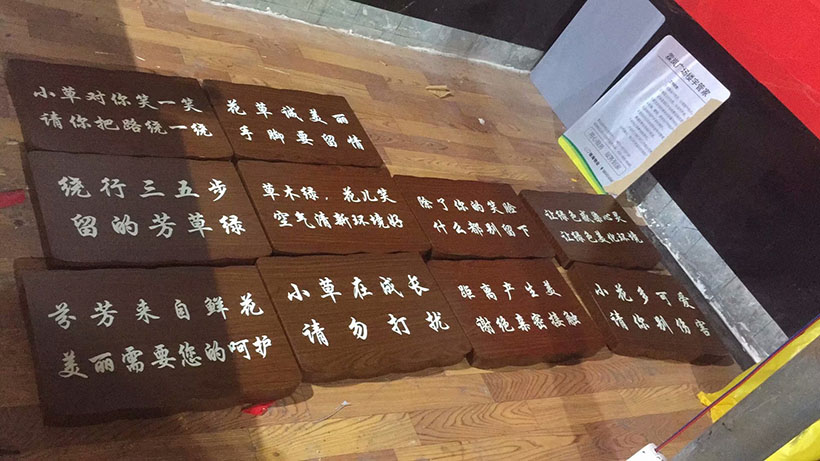 小草对你笑一笑
请你把路绕一绕
花草诚美丽
手脚要留情
绕行三五步
留的芳草绿
草木绿，花儿笑
空气清新环境好
除了你的笑脸
什么都别留下
让绿色
让绿色美化环境
芬芳来自鲜花
美丽需要您的呵护
小草在成长
请勿打扰
距离产生美
谢绝亲密接触
小花多可爱
请你别伤害
广场楼宇管家